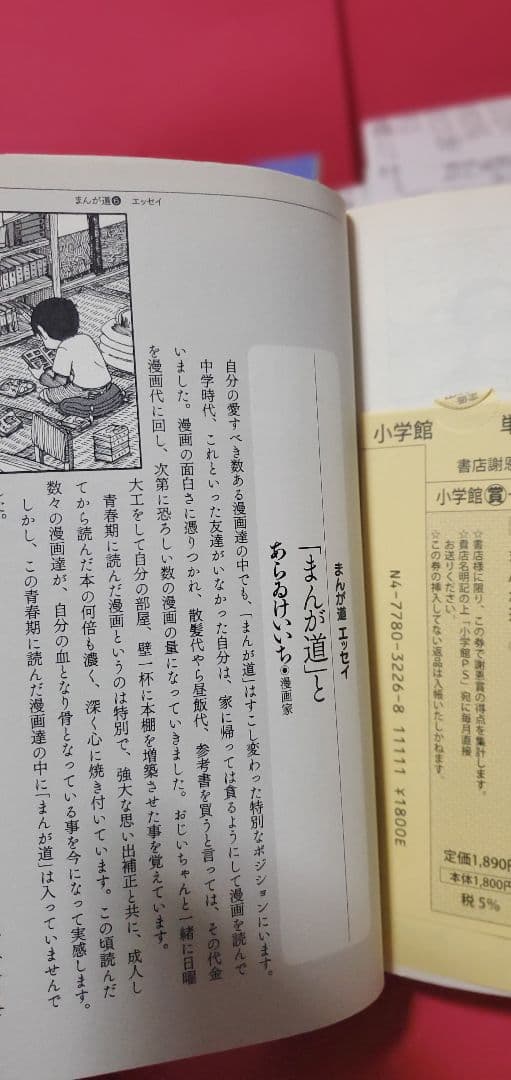 まんが道❻ エッセイ
まんが道 エッセイ
「まんが道」と
あらゐけいいち◉漫画家
自分の愛すべき数ある漫画達の中でも、「まんが道」はすこし変わった特別なポジションにいます。
中学時代、これといった友達がいなかった自分は、家に帰っては貪るようにして漫画を読んで
いました。漫画の面白さに憑りつかれ、散髪代やら昼飯代、参考書を買うと言っては、その代金
を漫画代に回し、次第に恐ろしい数の漫画の量になっていきました。おじいちゃんと一緒に日曜
大工をして自分の部屋、壁一杯に本棚を増築させた事を覚えています。
青春期に読んだ漫画というのは特別で、強大な思い出補正と共に、成人し
てから読んだ本の何倍も濃く、深く心に焼き付いています。この頃読んだ
数々の漫画達が、自分の血となり骨となっている事を今になって実感します。
しかし、この青春期に読んだ漫画達の中に「まんが道」は入っていませんで
した。
小学館
書店謝恩
小学館賞
☆書店様に限り、この券で謝恩賞の得点を集計します。
☆貴店名明記の上「小学館PS」宛に毎月直接
お送りください。
☆この券の挿入してない返品は入帳いたしかねます。
N4-7780-3226-8 11111 ¥1800E
定価1,890円
本体1,800円
税5%